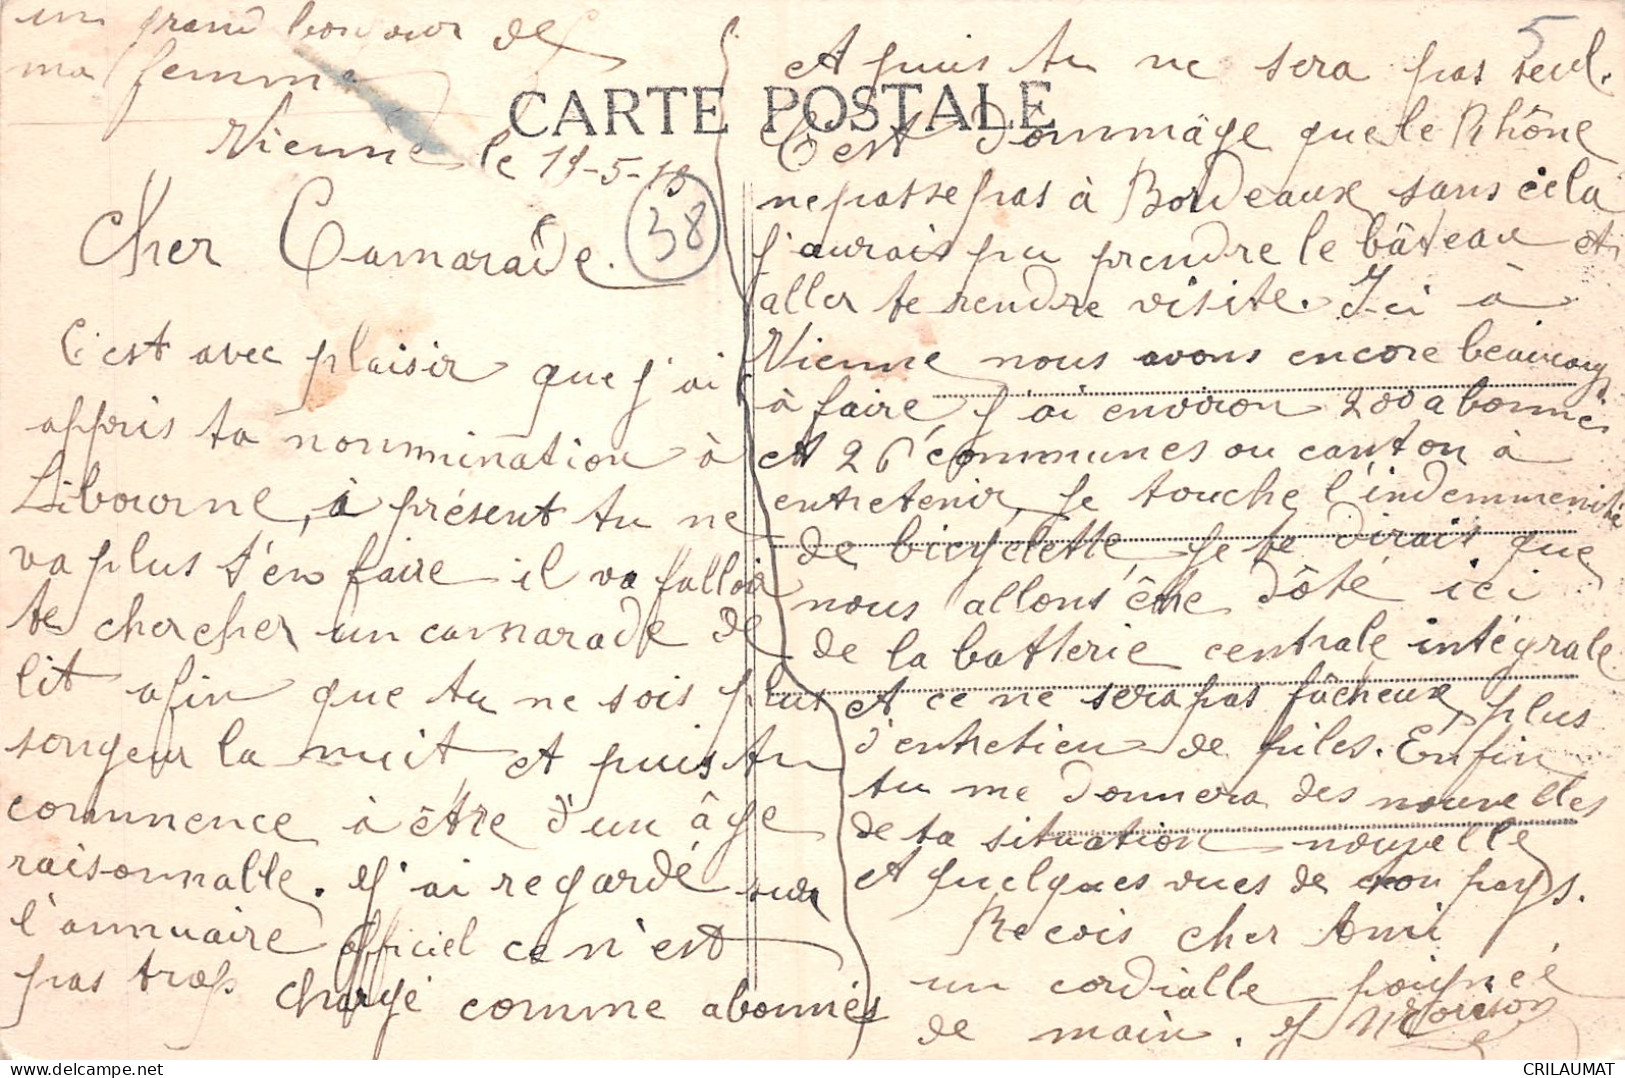 un grand bonjour de
ma femme
CARTE POSTALE
Vienne le 18-5-18
38
Cher Camarade.
C'est avec plaisir que j'ai
appris ta nounmination à
Libourne, à présent tu ne
va plus t'en faire il va falloir
te chercher un camarade de
lit afin que tu ne sois plus
songeur la nuit et puis tu
commence à être d'un âge
raisonnable. J'ai regardé sur
l'annuaire officiel ce n'est
pas trop chargé comme abonnés
5
et puis tu ne sera pas seul.
C'est dommage que le Rhône
ne passe pas à Bordeaux sans cela
j'aurais pu prendre le bâteau et
aller te rendre visite. Ici à
Vienne nous avons encore beaucoup
à faire, j'ai environ 200 abonnés
et 26 communes ou canton à
entretenir, je touche l'indemmenité
de bicyclette, je te dirais que
nous allons être dôté ici
de la batterie centrale intégrale
et ce ne sera pas fâcheux, plus
d'entretien de piles. Enfin
tu me donnera des nouvelles
de ta situation nouvelle
et quelques vues de ton pays.
Recois cher Ami
un cordialle poignée
de main.
CRILAUMAT